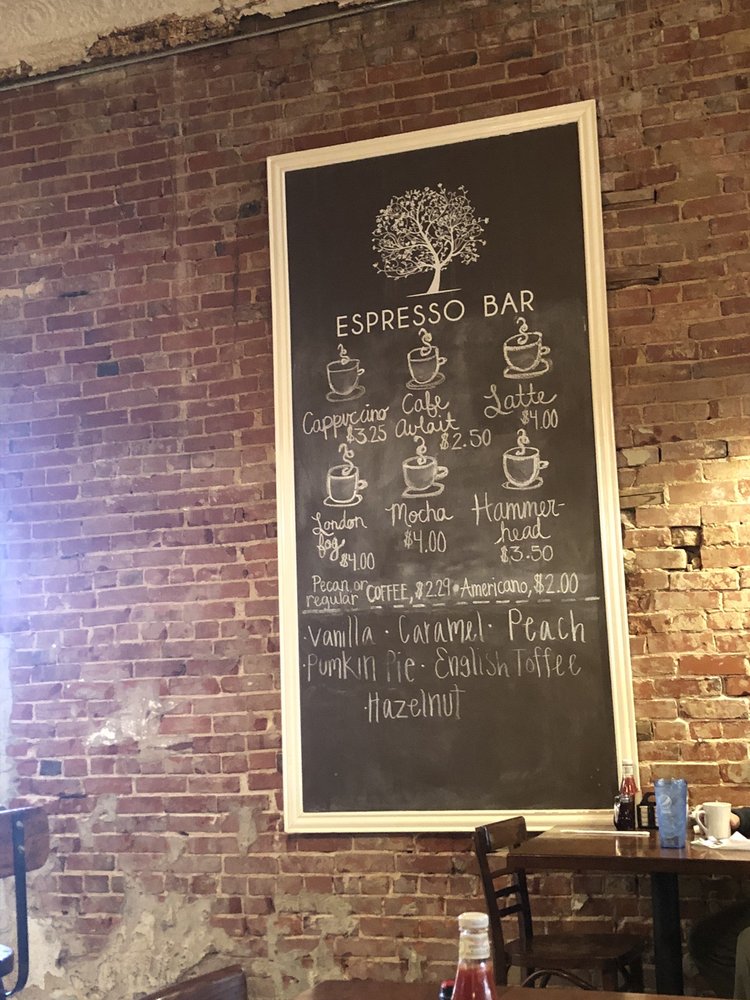 ESPRESSO BAR
Cappuccino
$3.25
Cafe
Aulait
$2.50
Latte
$4.00
London
fog
$4.00
Mocha
$4.00
Hammer-
head
$3.50
Pecan or
regular COFFEE, $2.29 • Americano, $2.00
• Vanilla • Caramel • Peach
• Pumkin Pie • English Toffee
• Hazelnut
pepsi